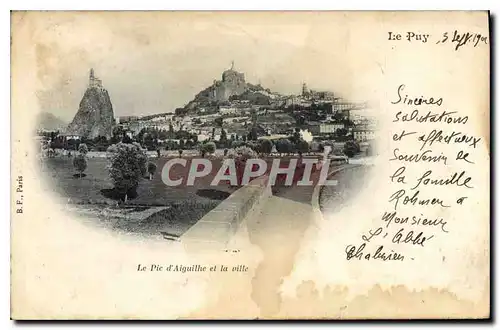 Le Puy
5 Sept. 190
Sincères
Salutations
et affectueux
Souvenir de
la famille
à
Monsieur
L'Abbé
CPARAMA
B. F., Paris
Le Pic d'Aiguilhe et la ville